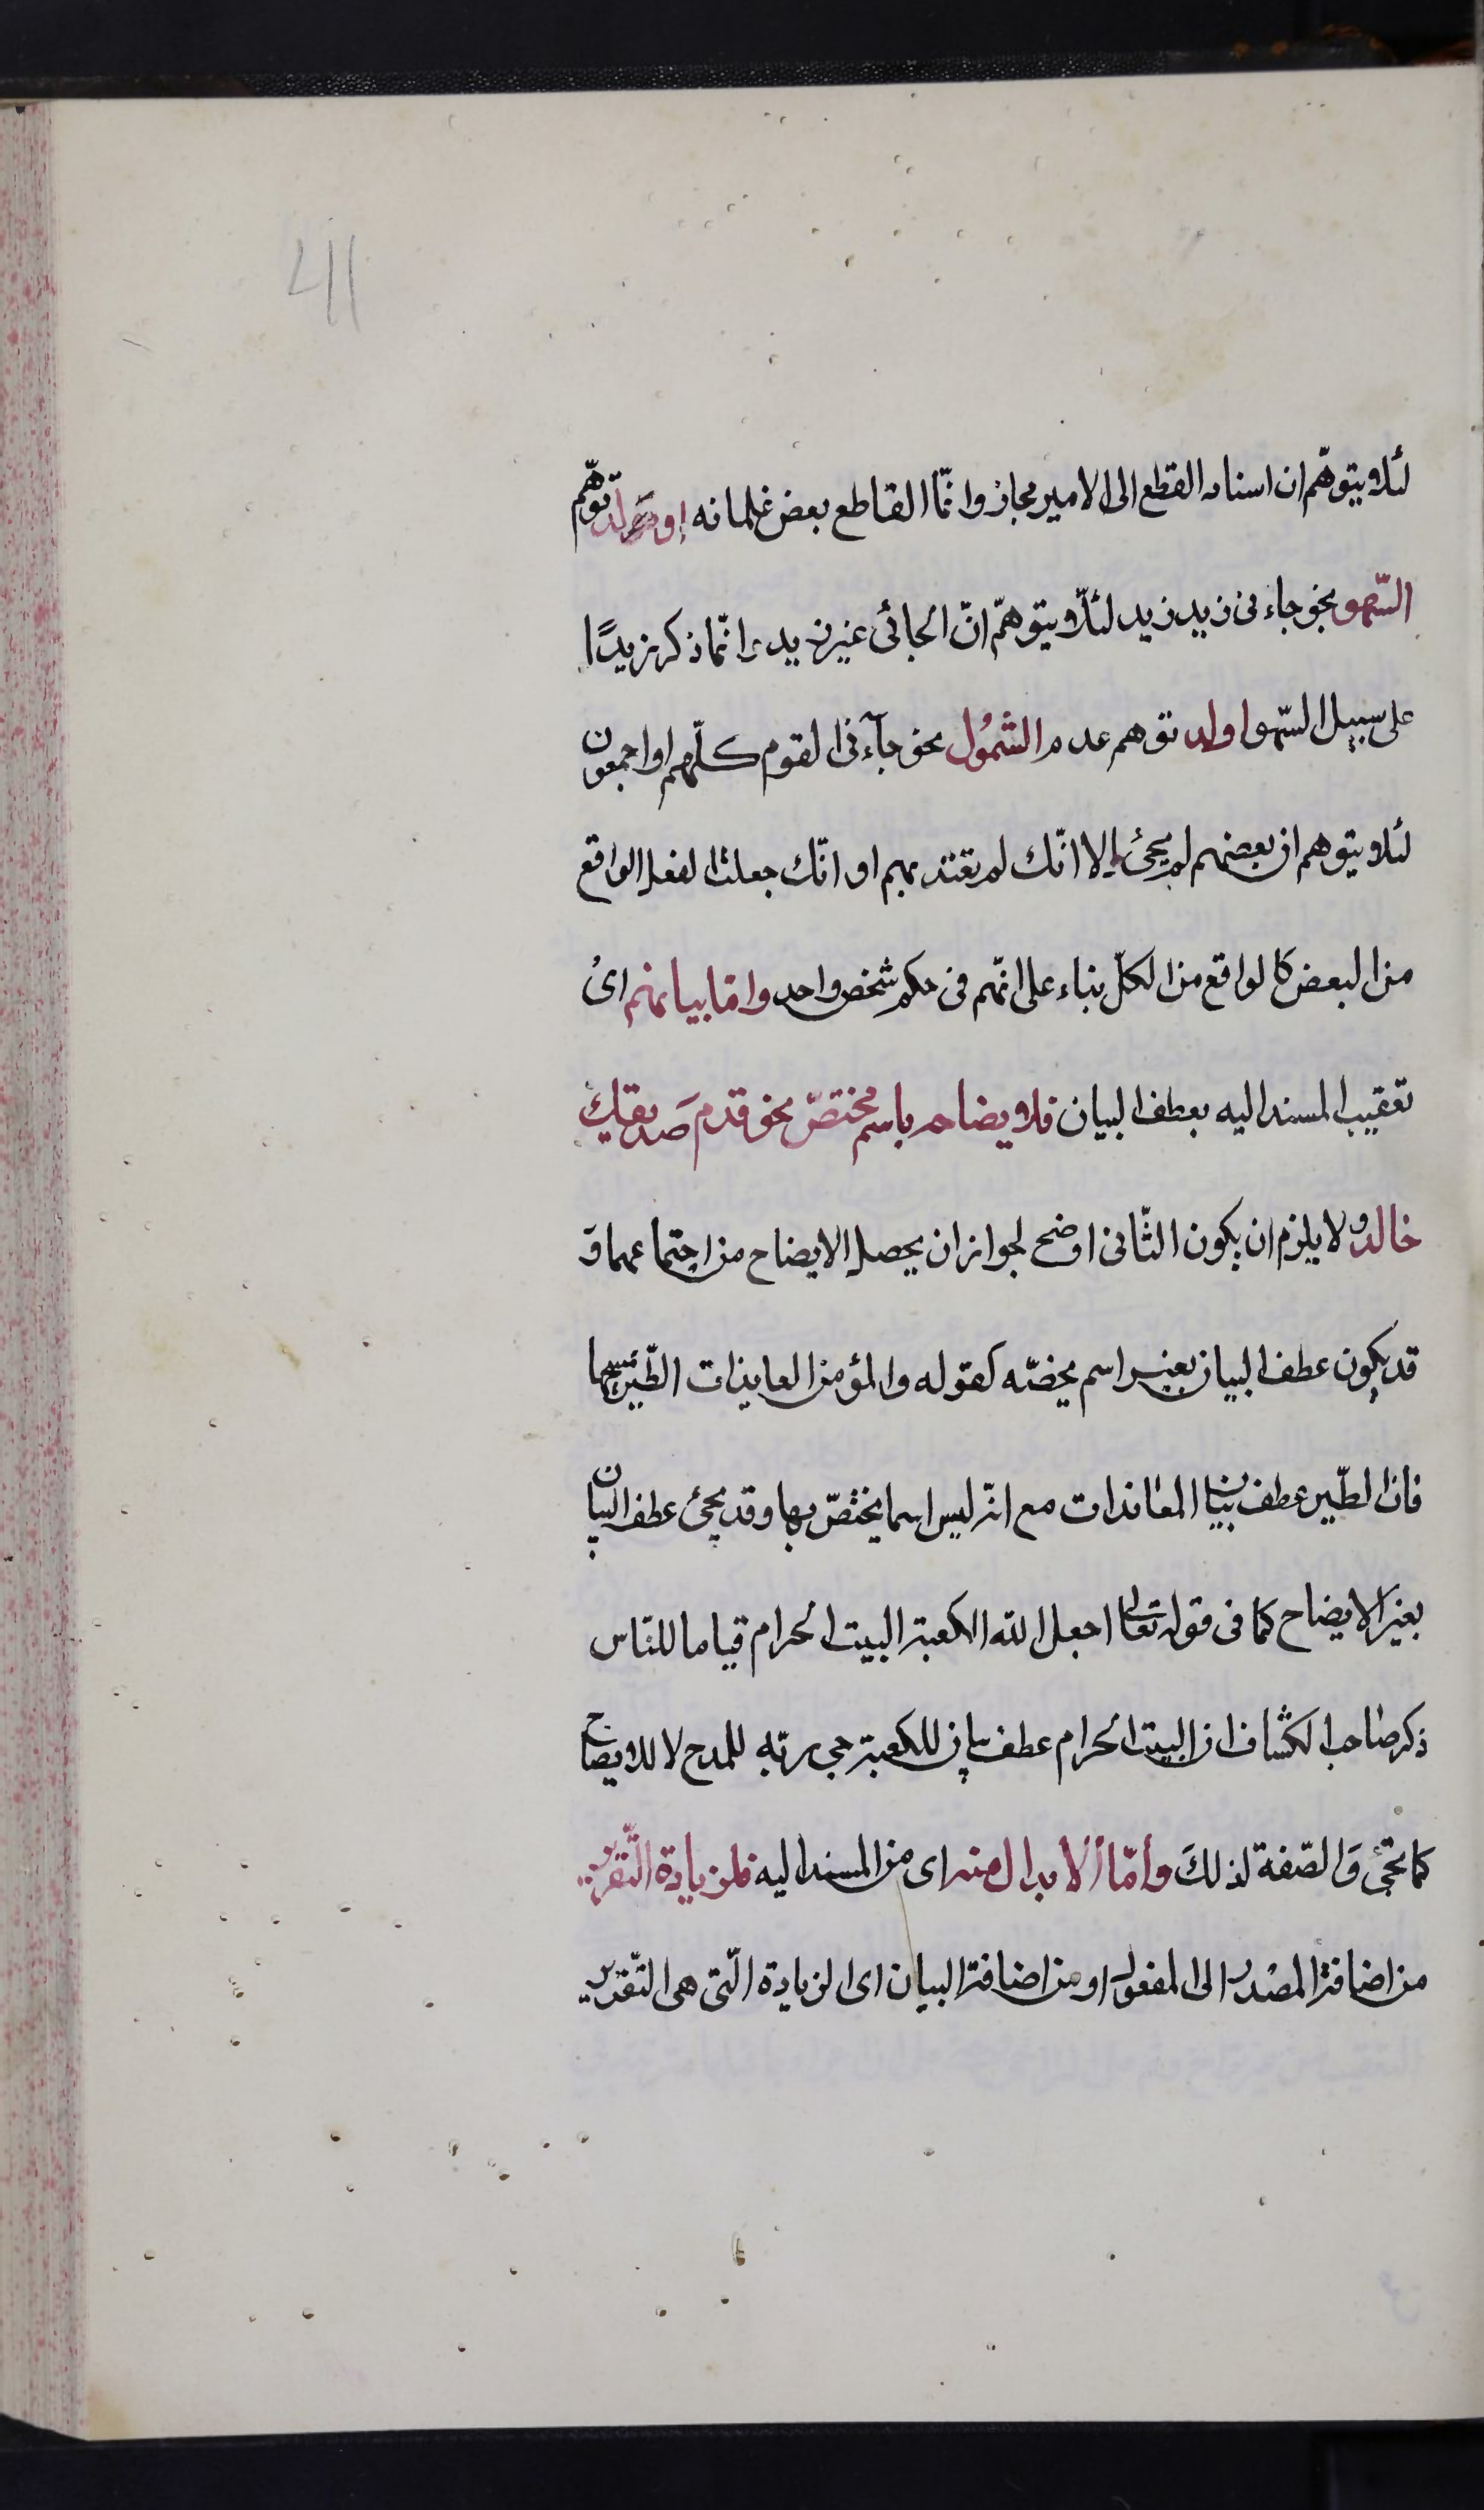 411
لئلا يتوهّم ان اسناد القطع الى الامير مجاز وانّما القاطع بعض غلمانه او لدفع توهّم
السّهو نحو جاءنى زيد زيد لئلّا يتوهمّ انّ الجائى غير زيد وانّما ذكر زيدًا
على سبيل السّهو او لد توهم عدم الشّمُول نحو جآءنى القوم كلّهم او اجمعون
لئلا يتوهم ان بعضهم لم يجئ الا انّك لم تعتد بهم او انّك جعلت الفعل الواقع
من البعض كالواقع من الكلّ بناء على انّهم فى حكم شخص واحد وامّا بيانهم اى
تعقيب المسند اليه بعطف البيان فلايضاحه باسم مختصّ نحو قدم صَديقك
خالد ولا يلزم ان يكون الثّانى اوضح لجواز ان يحصل الايضاح من اجتماعهما وَ
قد يكون عطف البيان بغير اسم يخصّه كقوله والمؤمن العايذات الطّير يمسحها
فان الطّير عطف بيان المعاندات مع انّه ليس اسما يختصّ بها وقد يجئ عطف البيان
بغير الايضاح كما فى قوله تعالى اجعل الله الكعبة البيت الحرام قياما للنّاس
ذكر صاحب الكشاف ان البيت الحرام عطف بيان للكعبة جىء به للمدح لا للايضاح
كما تجئ وَالصّفة لذلكَ وامّا الابدال منه اى من المسند اليه فلزيادة التّقرير
من اضافة المصْدر الى المفعول او من اضافة البيان اى الزيادة الّتى هى التّقرير